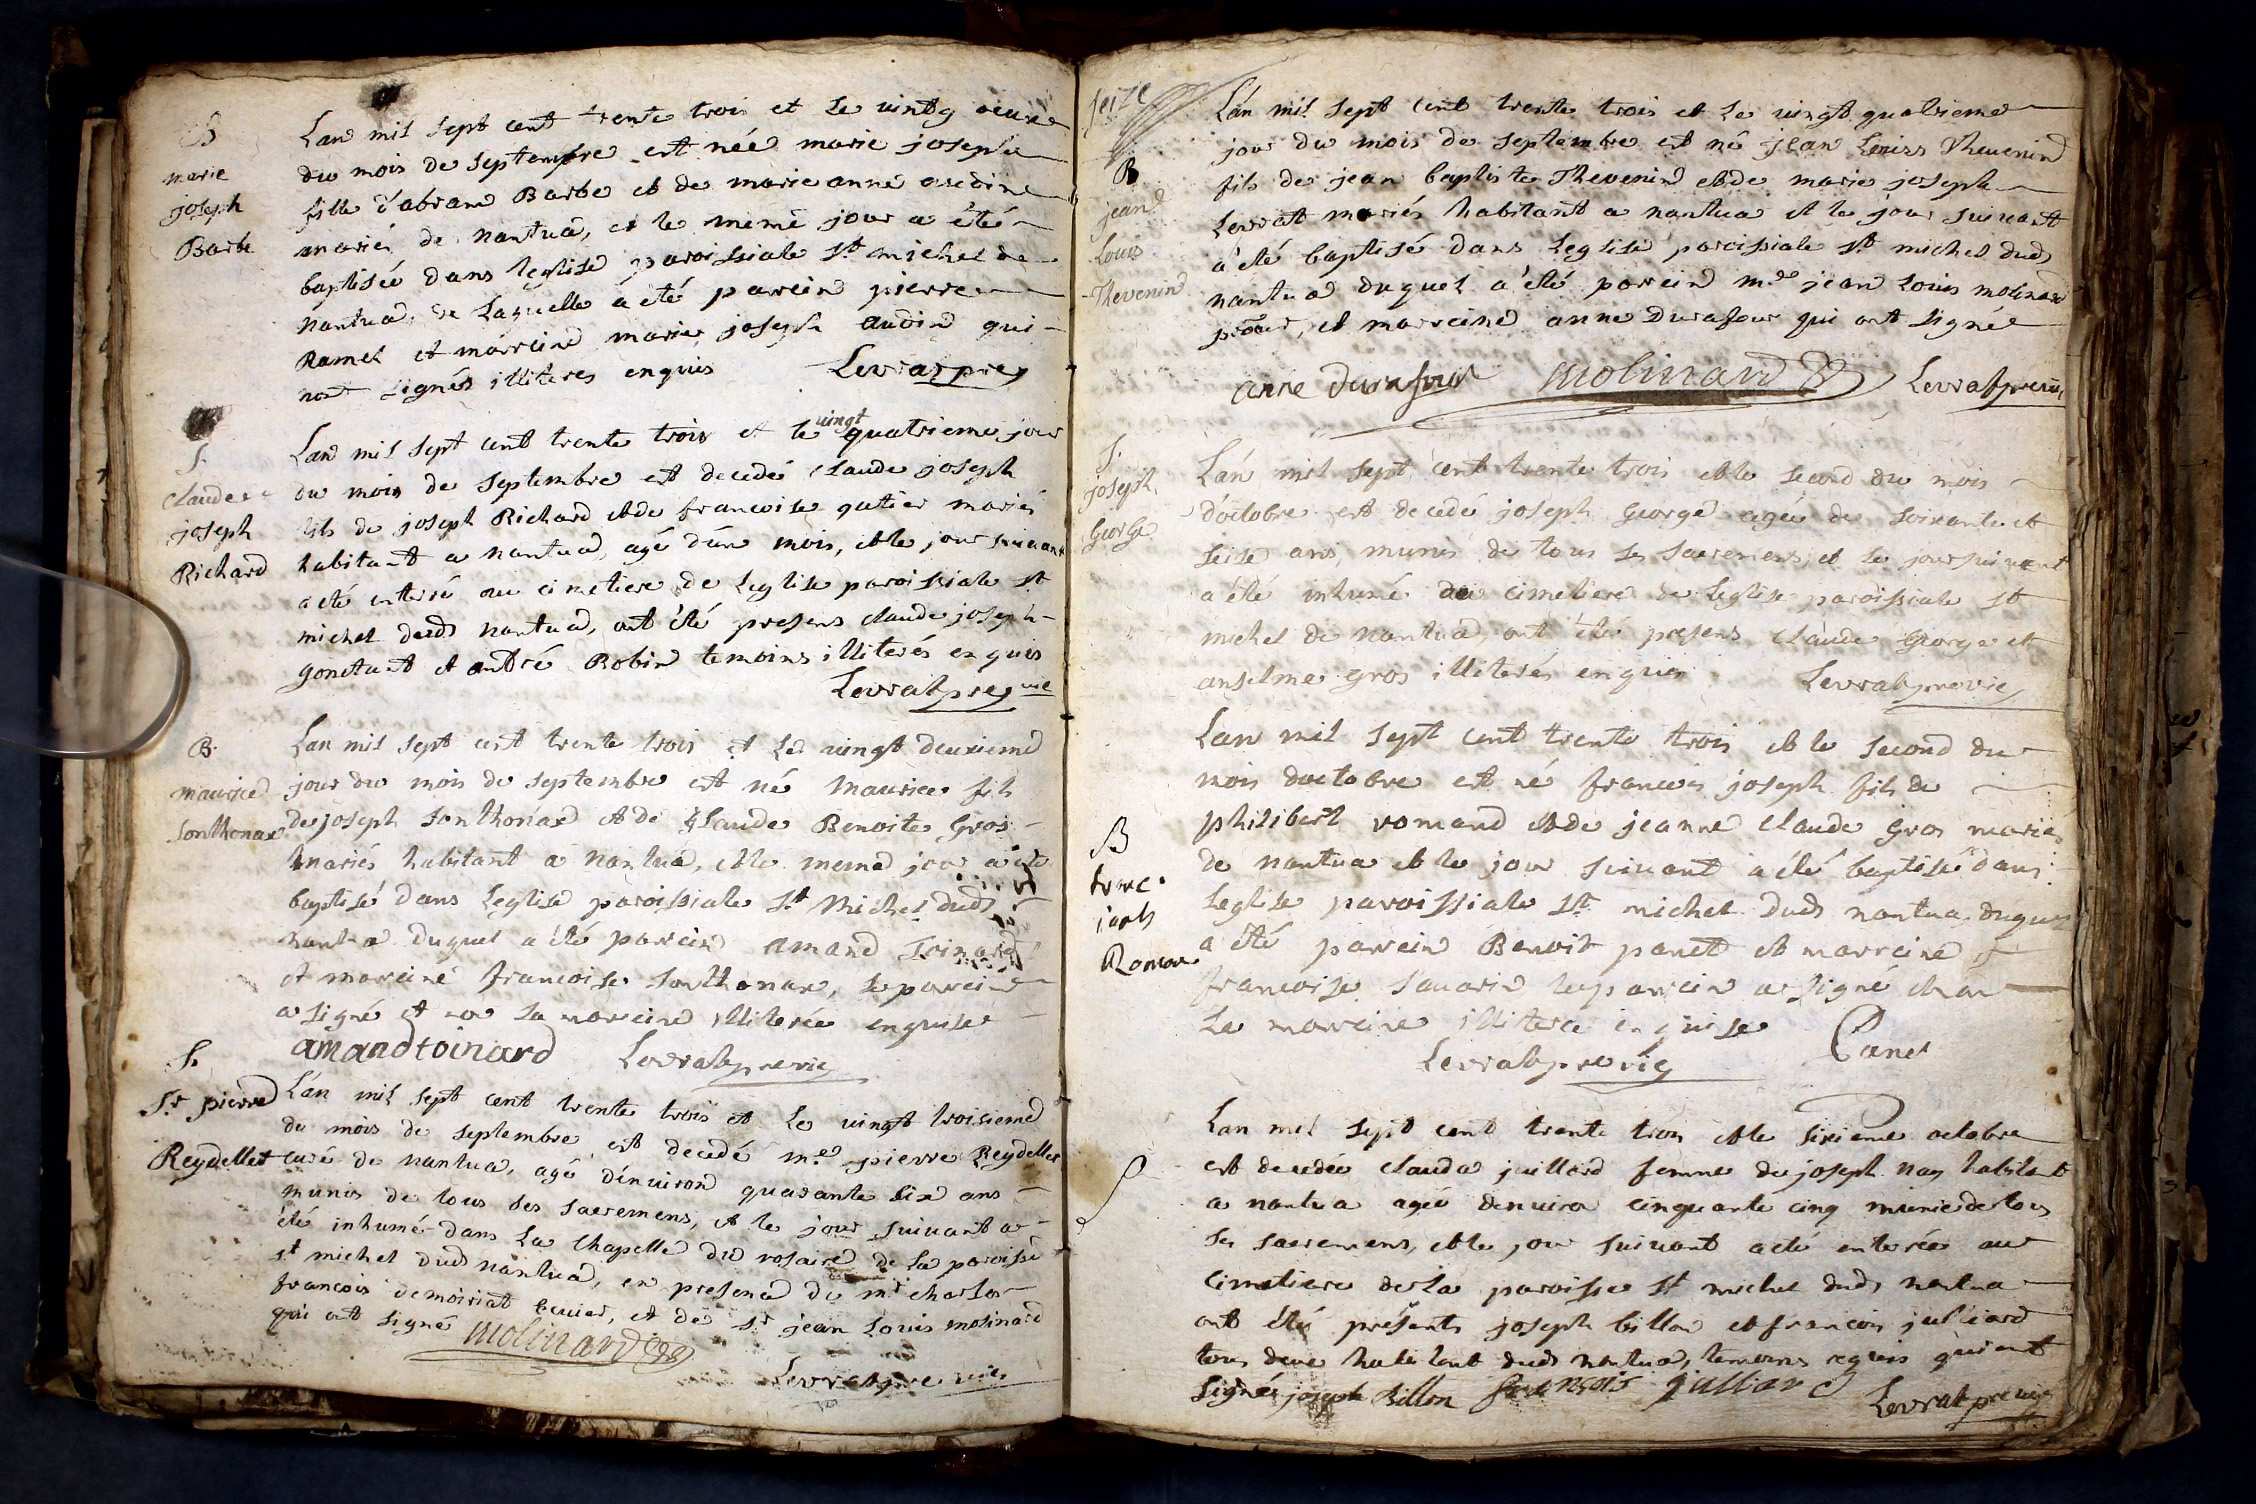 B
marie
joseph
Barbe
Lan mil sept cent trente trois et le vingt
du mois de septembre est née marie joseph
fille d'abram Barbe et de marie anne
mariés de nantua, et le meme jour a été
baptisée dans leglise paroissiale st michel de
nantua, de laquelle a été parrein pierre
Ramel et marreine marie joseph audin qui
nont signés illiteres enquis Levrat pre
S.
claude
joseph
Richard
Lan mil sept cent trente trois et le vingt quatrieme jour
du mois de septembre est decedé claude joseph
fils de joseph Richard et de francoise gutier mariés
habitant a nantua, agé d'un mois, et le jour suivant
a eté enterré au cimetiere de leglise paroissiale st
michel dud nantua, ont été presens claude joseph
gonetant et andré Robin temoins illiterés enquis
Levrat pre vic
B.
maurice
Sonthonax
Lan mil sept cent trente trois et le vingt deuxieme
jour du mois de septembre est né maurice fils
de joseph Sonthonax et de Claude Benoite Gros
mariés habitant a nantua, et le meme jour a été
baptisé dans leglise paroissiale st Michel dud
nantua duquel a été parrein amand Toinard
et marreine francoise Sonthonax, le parrein
a signé et non la marreine illiterée enquise
amand toinard Levrat pre vic
S.
Sr pierre
Reydellet
L'an mil sept cent trente trois et le vingt troisieme
du mois de septembre est decedé mre pierre Reydellet
curé de nantua, agé d'environ quarante six ans
munis de tous ses sacremens, et le jour suivant a
été inhumé dans la chapelle du rosaire de la paroisse
st michel dud nantua, en presence de mr charles
francois demoiriat ecuier, et de sr jean Louis molinard
qui ont signé molinard
Levrat pre vic
seize
B
jean
Louis
Thevenin
L'an mil sept cent trente trois et le vingt quatrieme
jour du mois de septembre est né jean Louis Thevenin
fils de jean baptiste Thevenin et de marie joseph
Levrat mariés habitant a nantua et le jour suivant
a été baptisé dans leglise paroissiale st michel dud
nantua duquel a été parrein me jean Louis molinard
et marreine anne Durafour qui ont signé
anne durafour molinard Levrat pre vic
S.
joseph
George
L'an mil sept cent trente trois et le second du mois
d'octobre est decedé joseph George agé de soixante et
seise ans, munis de tous ses sacremens, et le jour suivant
a été inhumé au cimetiere de leglise paroissiale st
michel de nantua, ont été presens claude George et
anselme gros illiterés enquis Levrat pre vic
B
franc
josph
Roman
Lan mil sept cent trente trois et le second du
mois doctobre est né francois joseph fils de
philibert romand et de jeanne claude Gros mariés
de nantua et le jour suivant a été baptisé dans
leglise paroissiale st michel dud nantua duquel
a été parrein Benoit panet et marreine
francoise savarin le parrein a signé et non
la marreine illiteree enquise Panet
Levrat pre vic
S
Lan mil sept cent trente trois et le sixieme octobre
est decedée clauda juillard femme de joseph nay habitant
a nantua agée denviron cinquante cinq munie de tous
ses sacremens, et le jour suivant a eté enterée au
cimetiere de la paroisse st michel dud nantua
ont été présents joseph billon et francois julliard
tous deux habitant dud nantua, temoins requis qui ont
signés joseph Billon francois julliard Levrat pre vic